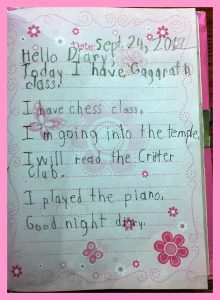 Date: Sept. 24, 2017
Hello Diary,
Today I have Gaggrath
class.
I have chess class.
I'm going into the temple
I will read the Critter
Club.
I played the piano.
Good night diary.